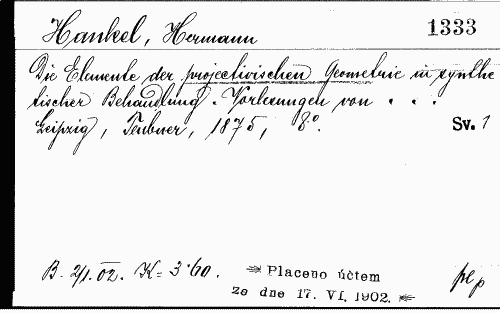 Hankel, Hermann 1333
Die Elemente der projectivischen Geometrie in synthe
tischer Behandlung. Vorlesungen von . . .
Leipzig, Teubner, 1875, 8°. Sv. 1
B. 2/1. 02. K= 3·60. Placeno účtem
ze dne 17. VI. 1902.